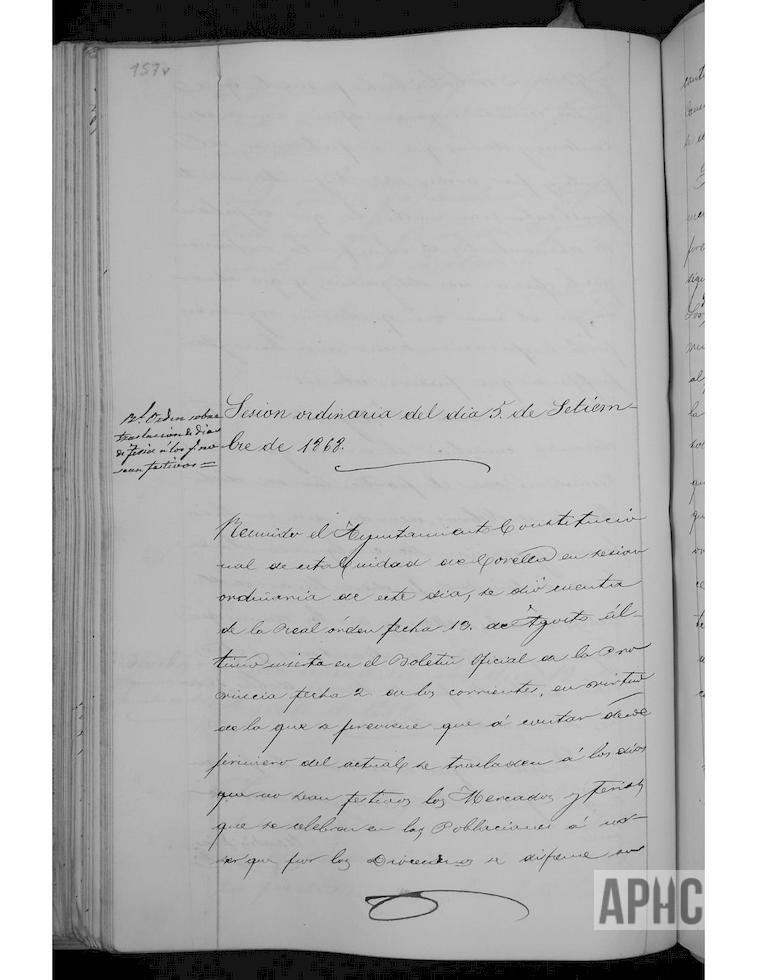 157v
Rl. Orden sobre
traslacion de dias
de feria á los q. no
sean festivos =
Sesion ordinaria del dia 5. de Setiem-
bre de 1868.
Reunido el Ayuntamiento Constitucio
nal de esta Ciudad de Corella en sesion
ordinaria de este dia, se dió cuenta
de la Real órden fecha 13. de Agosto úl-
timo inserta en el Boletin Oficial de la Pro
vincia fecha 2 de los corrientes, en virtud
de la que se previene que á contar desde
primero del actual se trasladen á los dias
que no sean festivos los Mercados y ferias
que se celebran en las Poblaciones á
que por los Diocesanos se dispense su
APHC